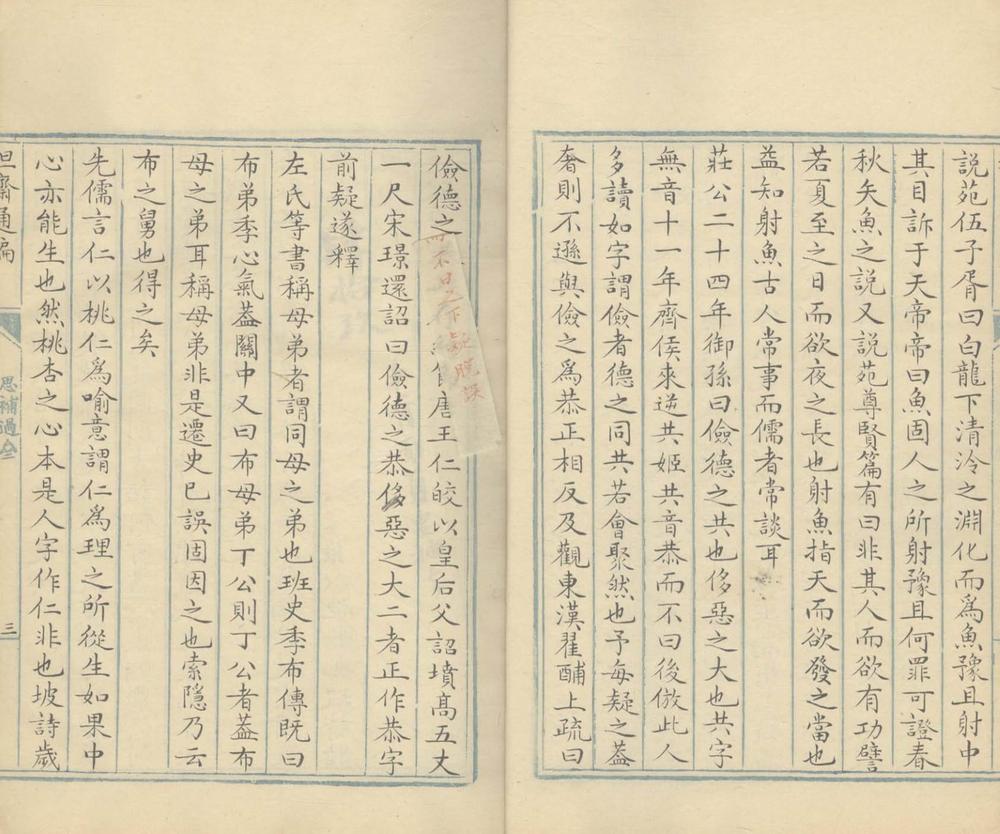 說苑伍子胥曰白龍下清泠之淵化而爲魚豫且射中
其目訴于天帝帝曰魚固人之所射豫且何罪可證春
秋矢魚之説又説苑尊賢篇有曰非其人而欲有功譬
若夏至之日而欲夜之長也射魚指天而欲發之當也
益知射魚古人常事而儒者常談耳
莊公二十四年御孫曰儉德之共也侈惡之大也共字
無音十一年齊侯來逆共姬共音恭而不曰後倣此人
多讀如字謂儉者德之同共若會聚然也予每疑之葢
奢則不遜與儉之爲恭正相反及觀東漢翟酺上疏曰
儉德之
唐王仁皎以皇后父詔墳髙五丈
而不足下疑脱誤
一尺宋璟還詔曰儉德之恭侈惡之大二者正作恭字
前疑遂釋
左氏等書稱母弟者謂同母之弟也班史季布傳既曰
布弟季心氣葢關中又曰布母弟丁公則丁公者葢布
母之弟耳稱母弟非是遷史已誤固因之也索隱乃云
布之舅也得之矣
先儒言仁以桃仁爲喻意謂仁爲理之所從生如果中
心亦能生也然桃杏之心本是人字作仁非也坡詩歲
坦齋通編
三
思補過齋